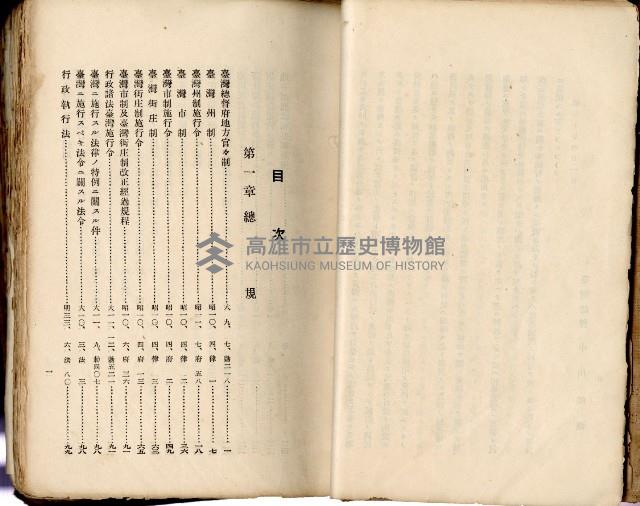 目次
第一章總規
臺灣總督府地方官々制……六、九、七、勅二一八……一
臺灣州制……昭一〇、四、律一……七
臺灣州制施行令……昭一一、七、府五八……一八
臺灣市制……昭一〇、四、律二……三六
臺灣市制施行令……昭一〇、四、府二……四九
臺灣街庄制……昭一〇、四、律三……六三
臺灣街庄制施行令……昭一〇、四、府一三……六五
臺灣市制及臺灣街庄制改正經過規程……昭一〇、六、府三六……九一
行政諸法臺灣施行令……大一一、一二、勅五二一……九一
臺灣ニ施行スル法律ノ特例ニ關スル件……大一一、九、勅四〇七……九八
臺灣ニ施行スベキ法令ニ關スル法令……大一〇、三、法三……九八
行政執行法……明三三、六、法八〇……九九
一
高雄市立歷史博物館
KAOHSIUNG MUSEUM OF HISTORY